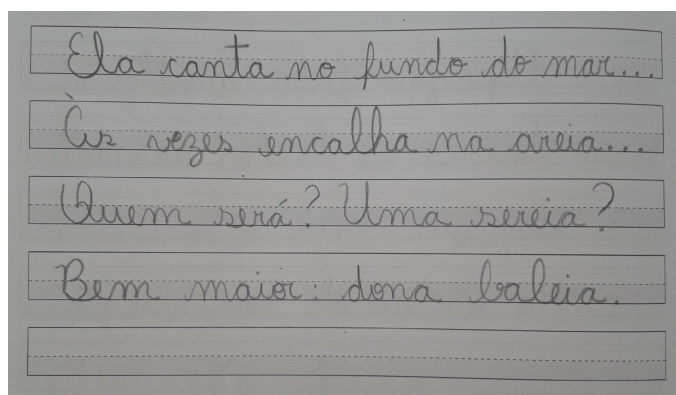 Ela canta no fundo do mar...
Às vezes encalha na areia...
Quem será? Uma sereia?
Bem maior: dona baleia.